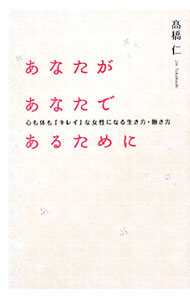 高橋 仁
Jin Takahashi
あなたが
あなたで
心も体も「キレイ」な女性になる生き方・働き方
あるために